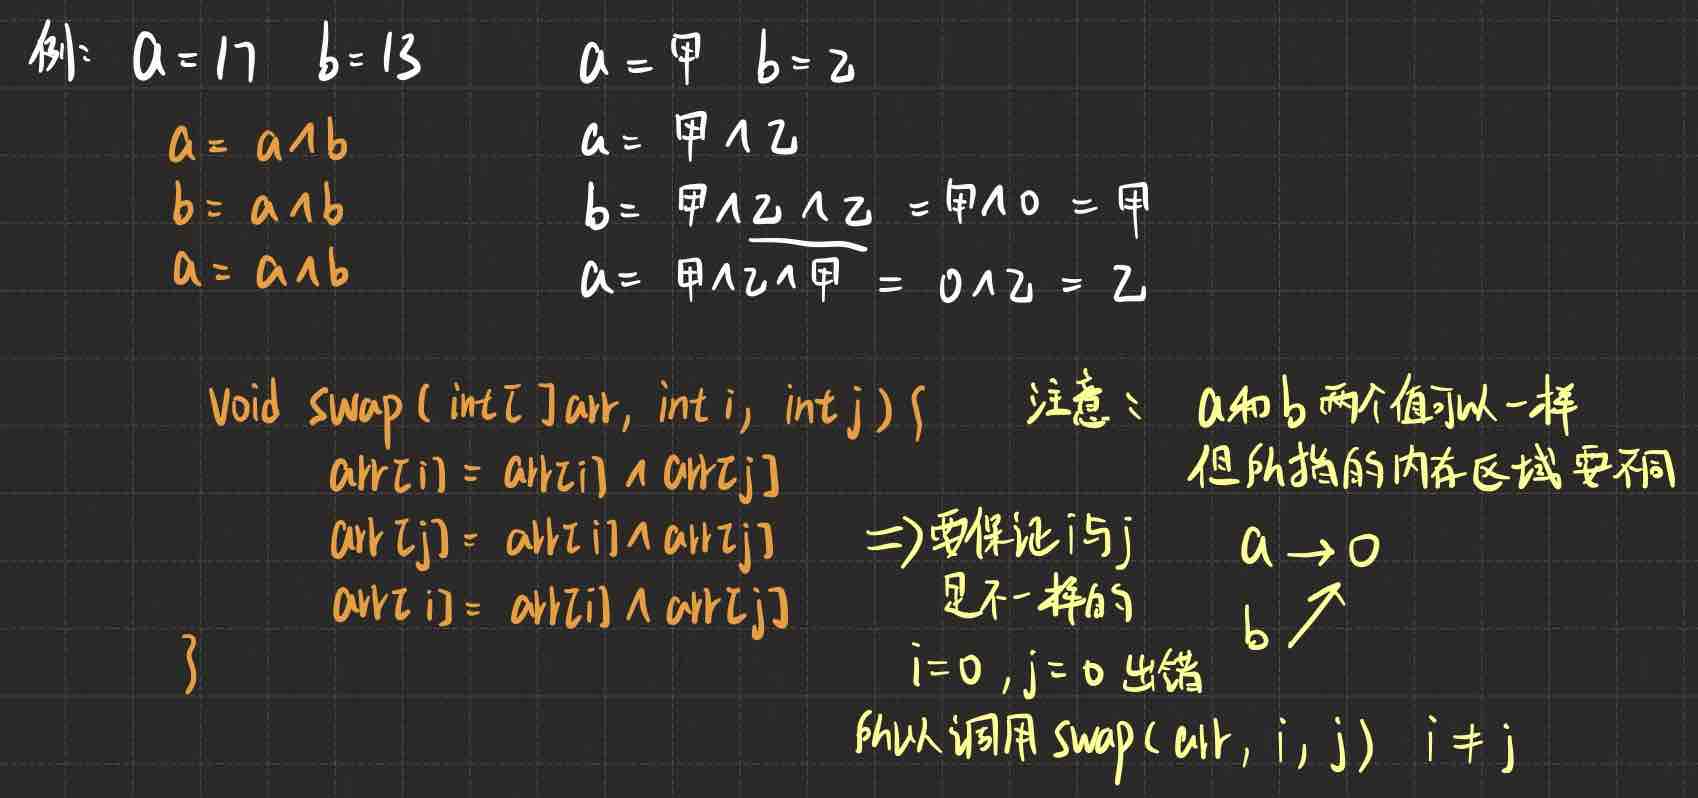 例: a = 17 b = 13
a = a ∧ b
b = a ∧ b
a = a ∧ b
a = 甲 b = 乙
a = 甲 ∧ 乙
b = 甲 ∧ 乙 ∧ 乙 = 甲 ∧ 0 = 甲
a = 甲 ∧ 乙 ∧ 甲 = 0 ∧ 乙 = 乙
void swap ( int [ ] arr, int i, int j ) {
arr[i] = arr[i] ∧ arr[j]
arr[j] = arr[i] ∧ arr[j]
arr[i] = arr[i] ∧ arr[j]
}
注意: a和b两个值可以一样
但所指的内存区域要不同
=> 要保证i与j
是不一样的
a → 0
b ↗
i=0 , j=0 出错
所以调用 swap( arr, i, j ) i ≠ j